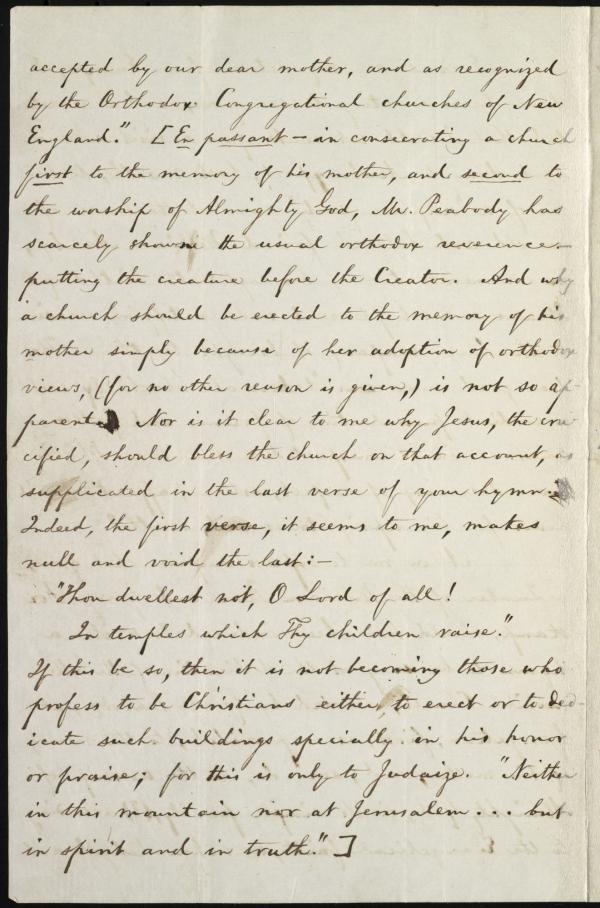 accepted by our dear mother, and as recognized
by the Orthodox Congregational churches of New
England." [En passant – in consecrating a church
first to the memory of his mother, and second to
the worship of Almighty God, Mr. Peabody has
scarcely shown the usual orthodox reverence –
putting the creature before the Creator. And why
a church should be erected to the memory of his
mother simply because of her adoption of orthodox
views, (for no other reason is given,) is not so ap-
parent. Nor is it clear to me why Jesus, the cru-
cified, should bless the church on that account, as
supplicated in the last verse of your hymn.
Indeed, the first verse, it seems to me, makes
null and void the last: –
"Thou dwellest not, O Lord of all!
In temples which Thy children raise."
If this be so, then it is not becoming those who
profess to be Christians either to erect or to ded-
icate such buildings specially in his honor
or praise; for this is only to Judaize. "Neither
in this mountain nor at Jerusalem . . . but
in spirit and in truth." ]